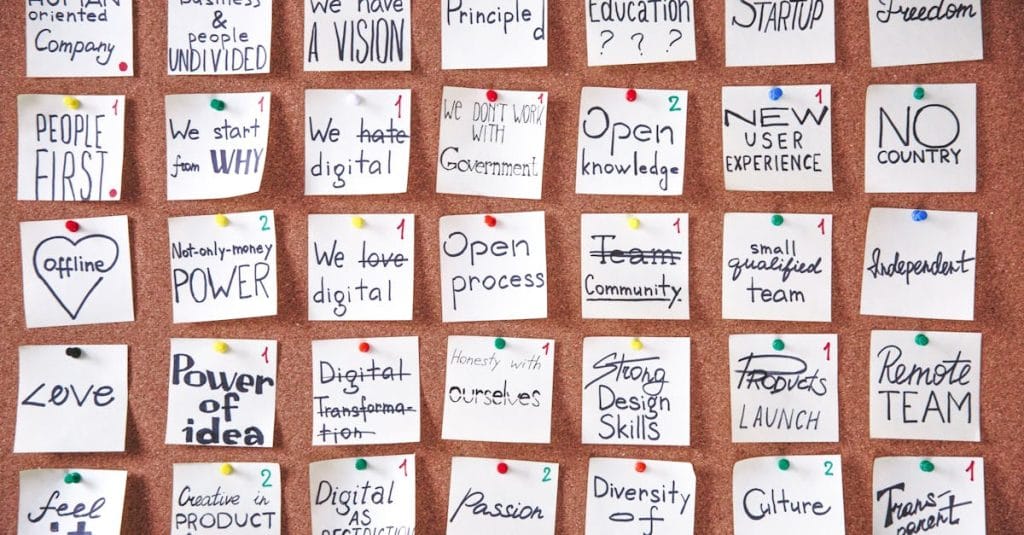 HUMAN
oriented
Company
Business
&
people
UNDIVIDED
We have
A VISION
Principled
Education
? ? ?
STARTUP
Freedom
1
PEOPLE
FIRST
1
We start
from WHY
1
We hate
digital
1
We DON'T WORK
WITH
Government
2
Open
knowledge
1
NEW
USER
EXPERIENCE
NO
COUNTRY
offline
2
Not-only-money
POWER
1
We love
digital
Open
process
1
Team
Community
1
small
qualified
team
Independent
Love
1
Power
of
idea
Digital
Transforma-
tion
1
Honesty with
ourselves
Strong
Design
Skills
1
PRODUCTS
LAUNCH
Remote
TEAM
feel
2
Creative in
PRODUCT
1
Digital
AS
2
Passion
Diversity
of
2
Culture
1
Trans-
parent